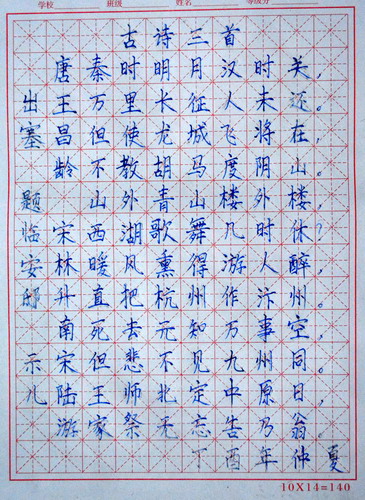 学校 班级 姓名 等级分
古诗三首
唐秦时明月汉时关，
出王万里长征人未还。
塞昌但使龙城飞将在，
龄不教胡马度阴山。
题山外青山楼外楼，
临宋西湖歌舞几时休？
安林暖风熏得游人醉，
邸升直把杭州作汴州。
南死去元知万事空，
示宋但悲不见九州同。
儿陆王师北定中原日，
游家祭无忘告乃翁。
丁酉年仲夏
10X14=140